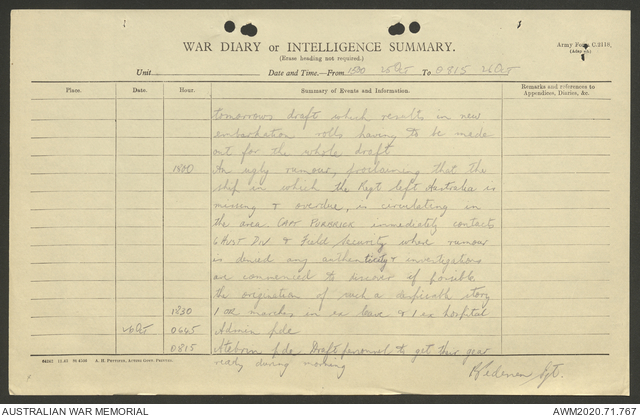 WAR DIARY or INTELLIGENCE SUMMARY.
(Erase heading not required.)
Army Form C.2118.
Unit
Date and Time.—From 1500 25 Oct To 0815 26 Oct
Place. Date. Hour. Summary of Events and Information. Remarks and references to Appendices, Diaries, &c.
tomorrows draft which results in new
embarkation rolls having to be made
out for the whole draft
1800 An ugly rumour, proclaiming that the
ship in which the Regt left Australia is
missing & overdue, is circulating in
the area. CAPT PURBRICK immediately contacts
6 Aust Div. & Field Security where rumour
is denied any authenticity & investigations
are commenced to discover if possible
the origination of such a despicable story
1830 1 OR marches in ex leave & 1 ex hospital
26 Oct 0645 Admin pde
0815 Atebrin pde. Draft personnel to get their gear
ready during morning
Sgt.
AUSTRALIAN WAR MEMORIAL
AWM2020.71.767